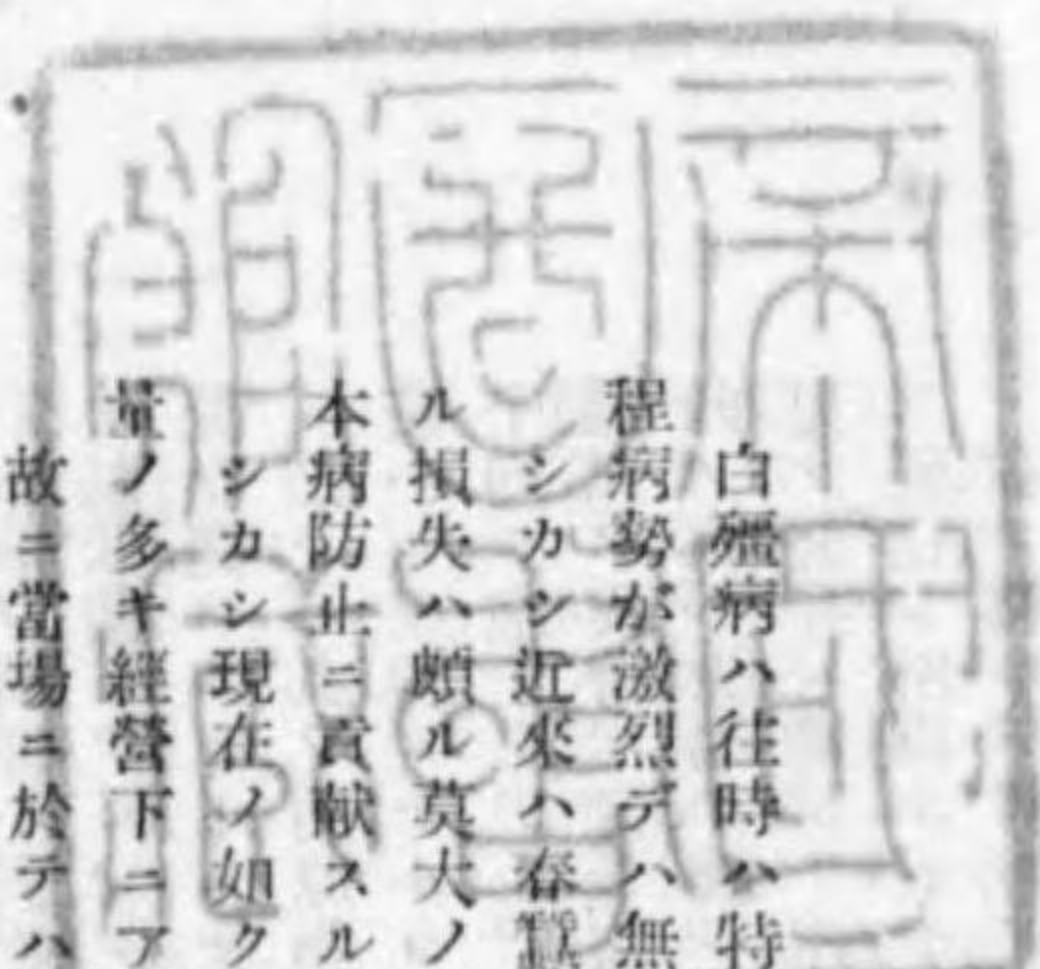 白殭病ハ往時ハ特
程病勢が激烈デハ無
シカシ近來ハ春蠶
ル損失ハ頗ル莫大ノ
本病防止ニ貢献スル
シカシ現在ノ如ク
量ノ多キ經營下ニア
故ニ當場ニ於テハ